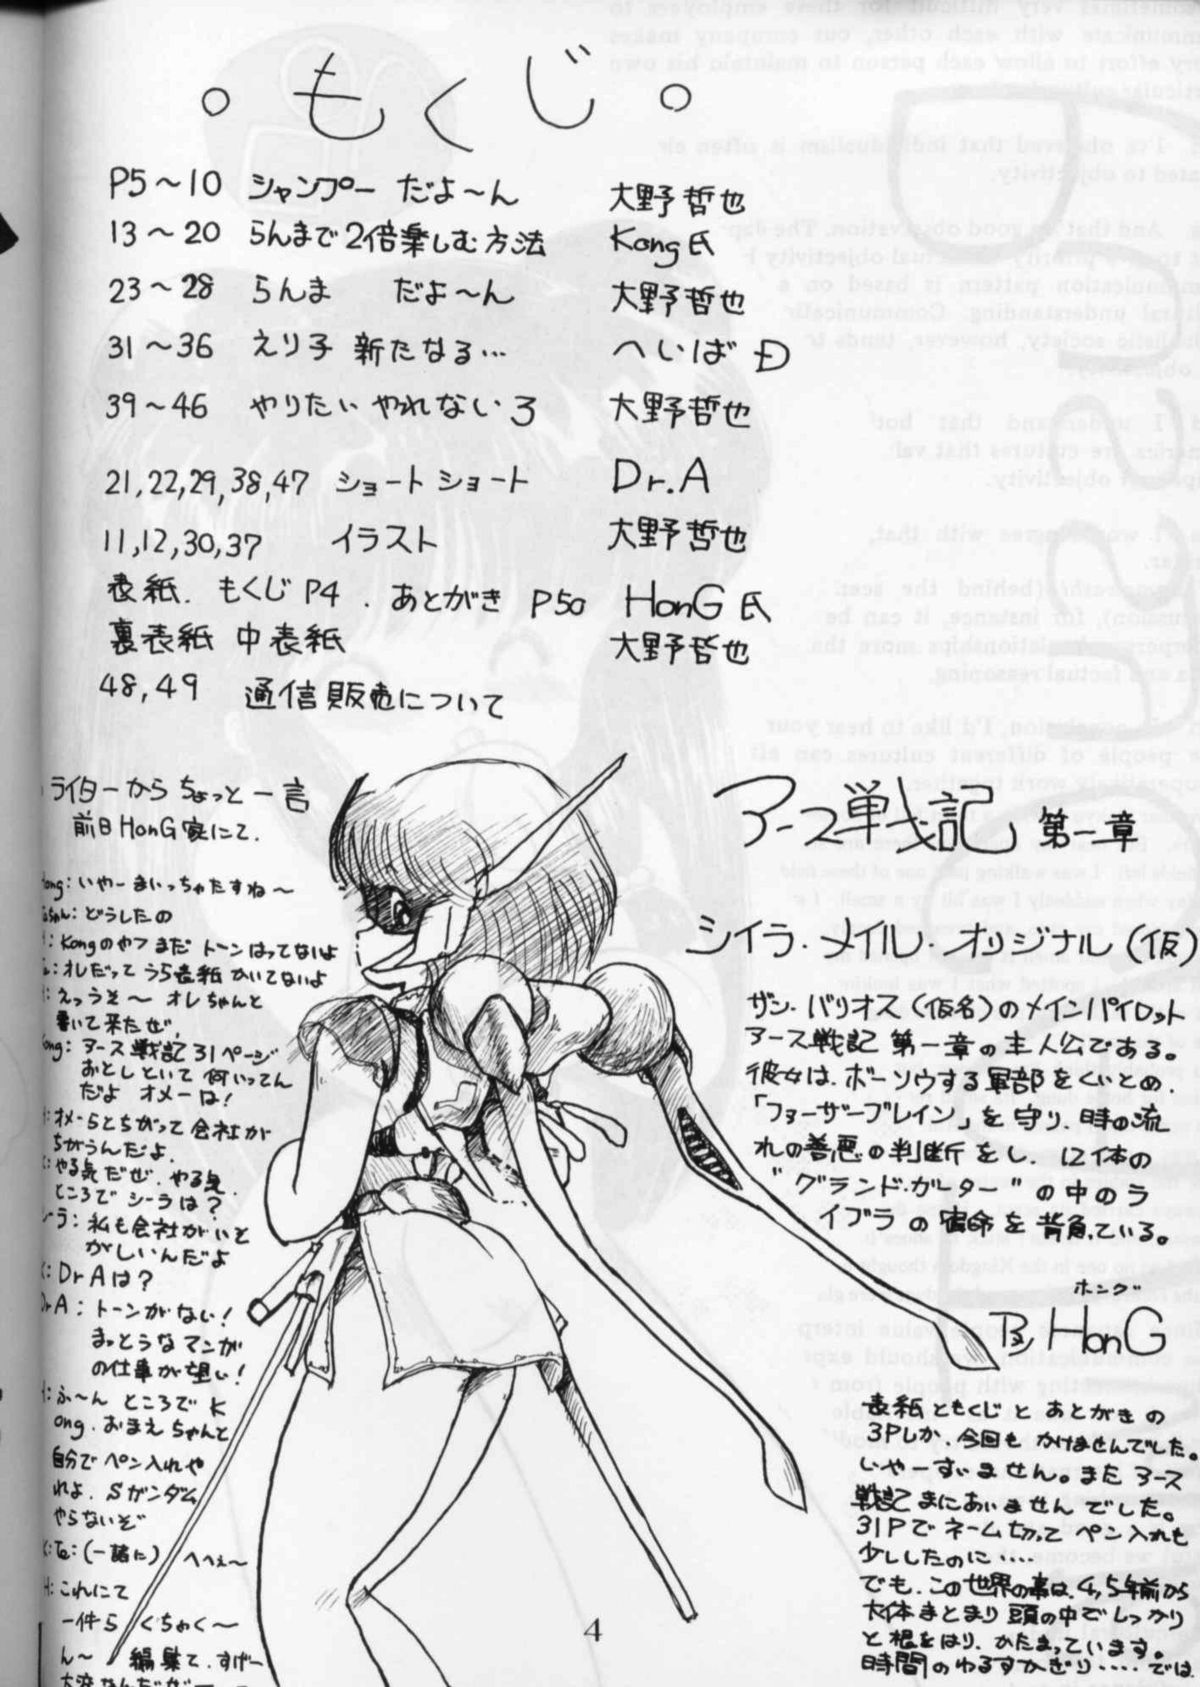 。もくじ。
P5～10 シャンプー だよ～ん 大野哲也
13～20 らんまで2倍楽しむ方法 Kong氏
23～28 らんま だよ～ん 大野哲也
31～36 えり子 新たなる… へいば Đ
39～46 やりたい やれない 3 大野哲也
21,22,29,38,47 ショートショート Dr.A
11,12,30,37 イラスト 大野哲也
表紙. もくじ P4 . あとがき P50 HonG 氏
裏表紙 中表紙 大野哲也
48,49 通信販売について
ライターから ちょっと一言
前日 HonG 家にて.
Hong: いやーまいっちゃたすね～
どうしたの
H: Kongのやつ まだ トーンはってないよ
Te: オレだって うら表紙 かいてないよ
H: えっうそ～ オレちゃんと
書いて来たぜ.
Kong: アース戦記31ページ
おとしといて 何いってん
だよ オメーは!
H: オメーらとちがって会社が
ちがうんだよ.
K: やる気だぜ. やる気.
ところで シーラは?
シーラ: 私も会社がいそ
がしいんだよ
K: Dr Aは?
Dr A: トーンがない!
まっとうなマンガ
の仕事が望い!
H: ふ～ん ところで K
ong. おまえちゃんと
自分で ペン入れや
れよ. Sガンダム
やらないぞ
K: Te: (一諸に) へへぇ～
H: これにて
一件ら くちゃく～
ん～ 編集て. すげー
アース戦記 第一章
シイラ・メイル・オリジナル(仮)
ザン・バリオス(仮名)のメインパイロット
アース戦記 第一章の主人公である。
彼女は、ボーソウする軍部をくいとめ.
「フォーザーブレイン」を守り 時の流
れの善悪の判断をし、12体の
"グランド・ガーター"の中のラ
イブラの宿命を背負っている。
ホング
HonG
表紙ともくじと あとがきの
3Pしか、今回も かけませんでした。
いやーすいません。また アース
戦記 まにあいません でした。
31Pで ネーム切って ペン入れも
少ししたのに‥‥
でも、この世界の事は、4,5年前から
大体まとまり 頭の中で しっかり
と根をはり、かたまっています。
時間のゆるすかぎり‥‥では
4